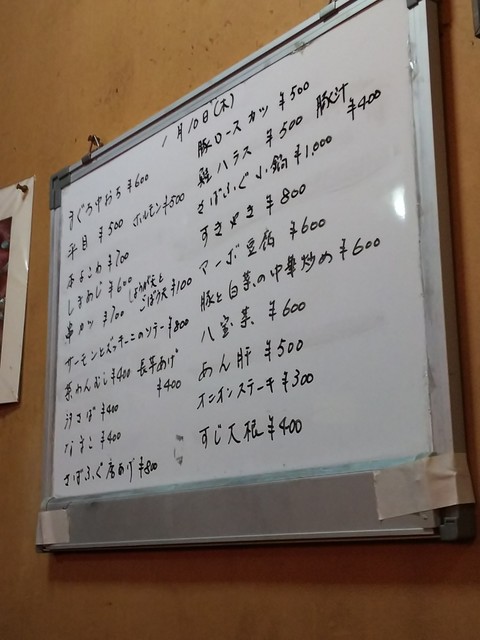 1月10日(木)
まぐろ中おち ¥600
平目 ¥500 ホルモン ¥500
本よこわ ¥700
しまあじ ¥600
串カツ ¥700 しょうが天と ごぼう天 ¥100
サーモンとズッキーニのソテー ¥800
茶わんむし ¥400 長芋あげ ¥400
汐さば ¥400
なまこ ¥400
さばふぐ唐あげ ¥800
豚ロースカツ ¥500 豚汁 ¥400
鮭ハラス ¥500
さばふぐ小鍋 ¥1,000
すきやき ¥800
マーボ豆腐 ¥600
豚と白菜の中華炒め ¥600
八宝菜 ¥600
あん肝 ¥500
オニオンステーキ ¥300
すじ大根 ¥400